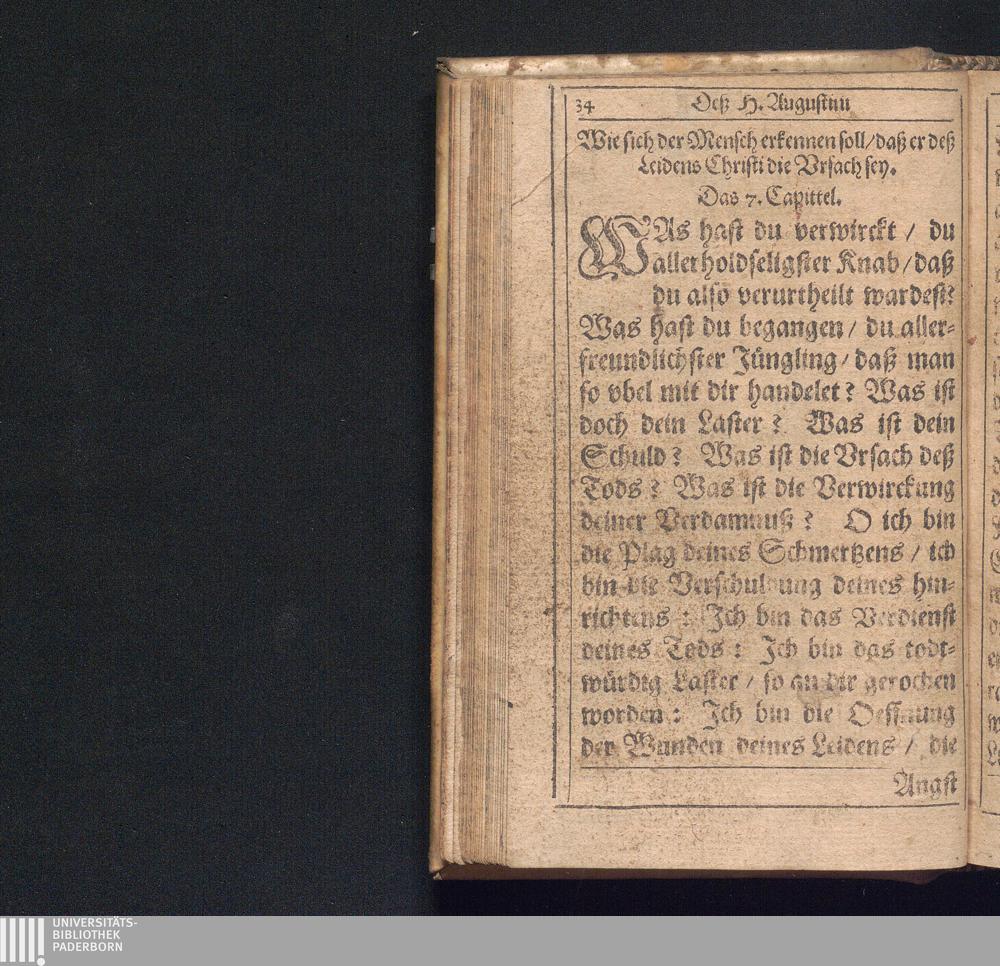 34 Deß H. Augustini
Wie sich der Mensch erkennen soll/daß er deß
Leidens Christi die Vrsach sey.
Das 7. Capittel.
WAs hast du verwirckt / du
allerholdseligster Knab/daß
du also verurtheilt wardest?
Was hast du begangen/ du aller-
freundlichster Jüngling/daß man
so vbel mit dir handelet? Was ist
doch dein Laster? Was ist dein
Schuld? Was ist die Vrsach deß
Tods? Was ist die Verwirckung
deiner Verdamnuß? O ich bin
die Plag deines Schmertzens / ich
bin die Verschuldung deines hin-
richtens : Ich bin das Verdienst
deines Tods : Ich bin das todt-
würdig Laster / so an dir gerochen
worden : Ich bin die Oeffnung
der Wunden deines Leidens / die
Angst
UNIVERSITÄTS-
BIBLIOTHEK
PADERBORN